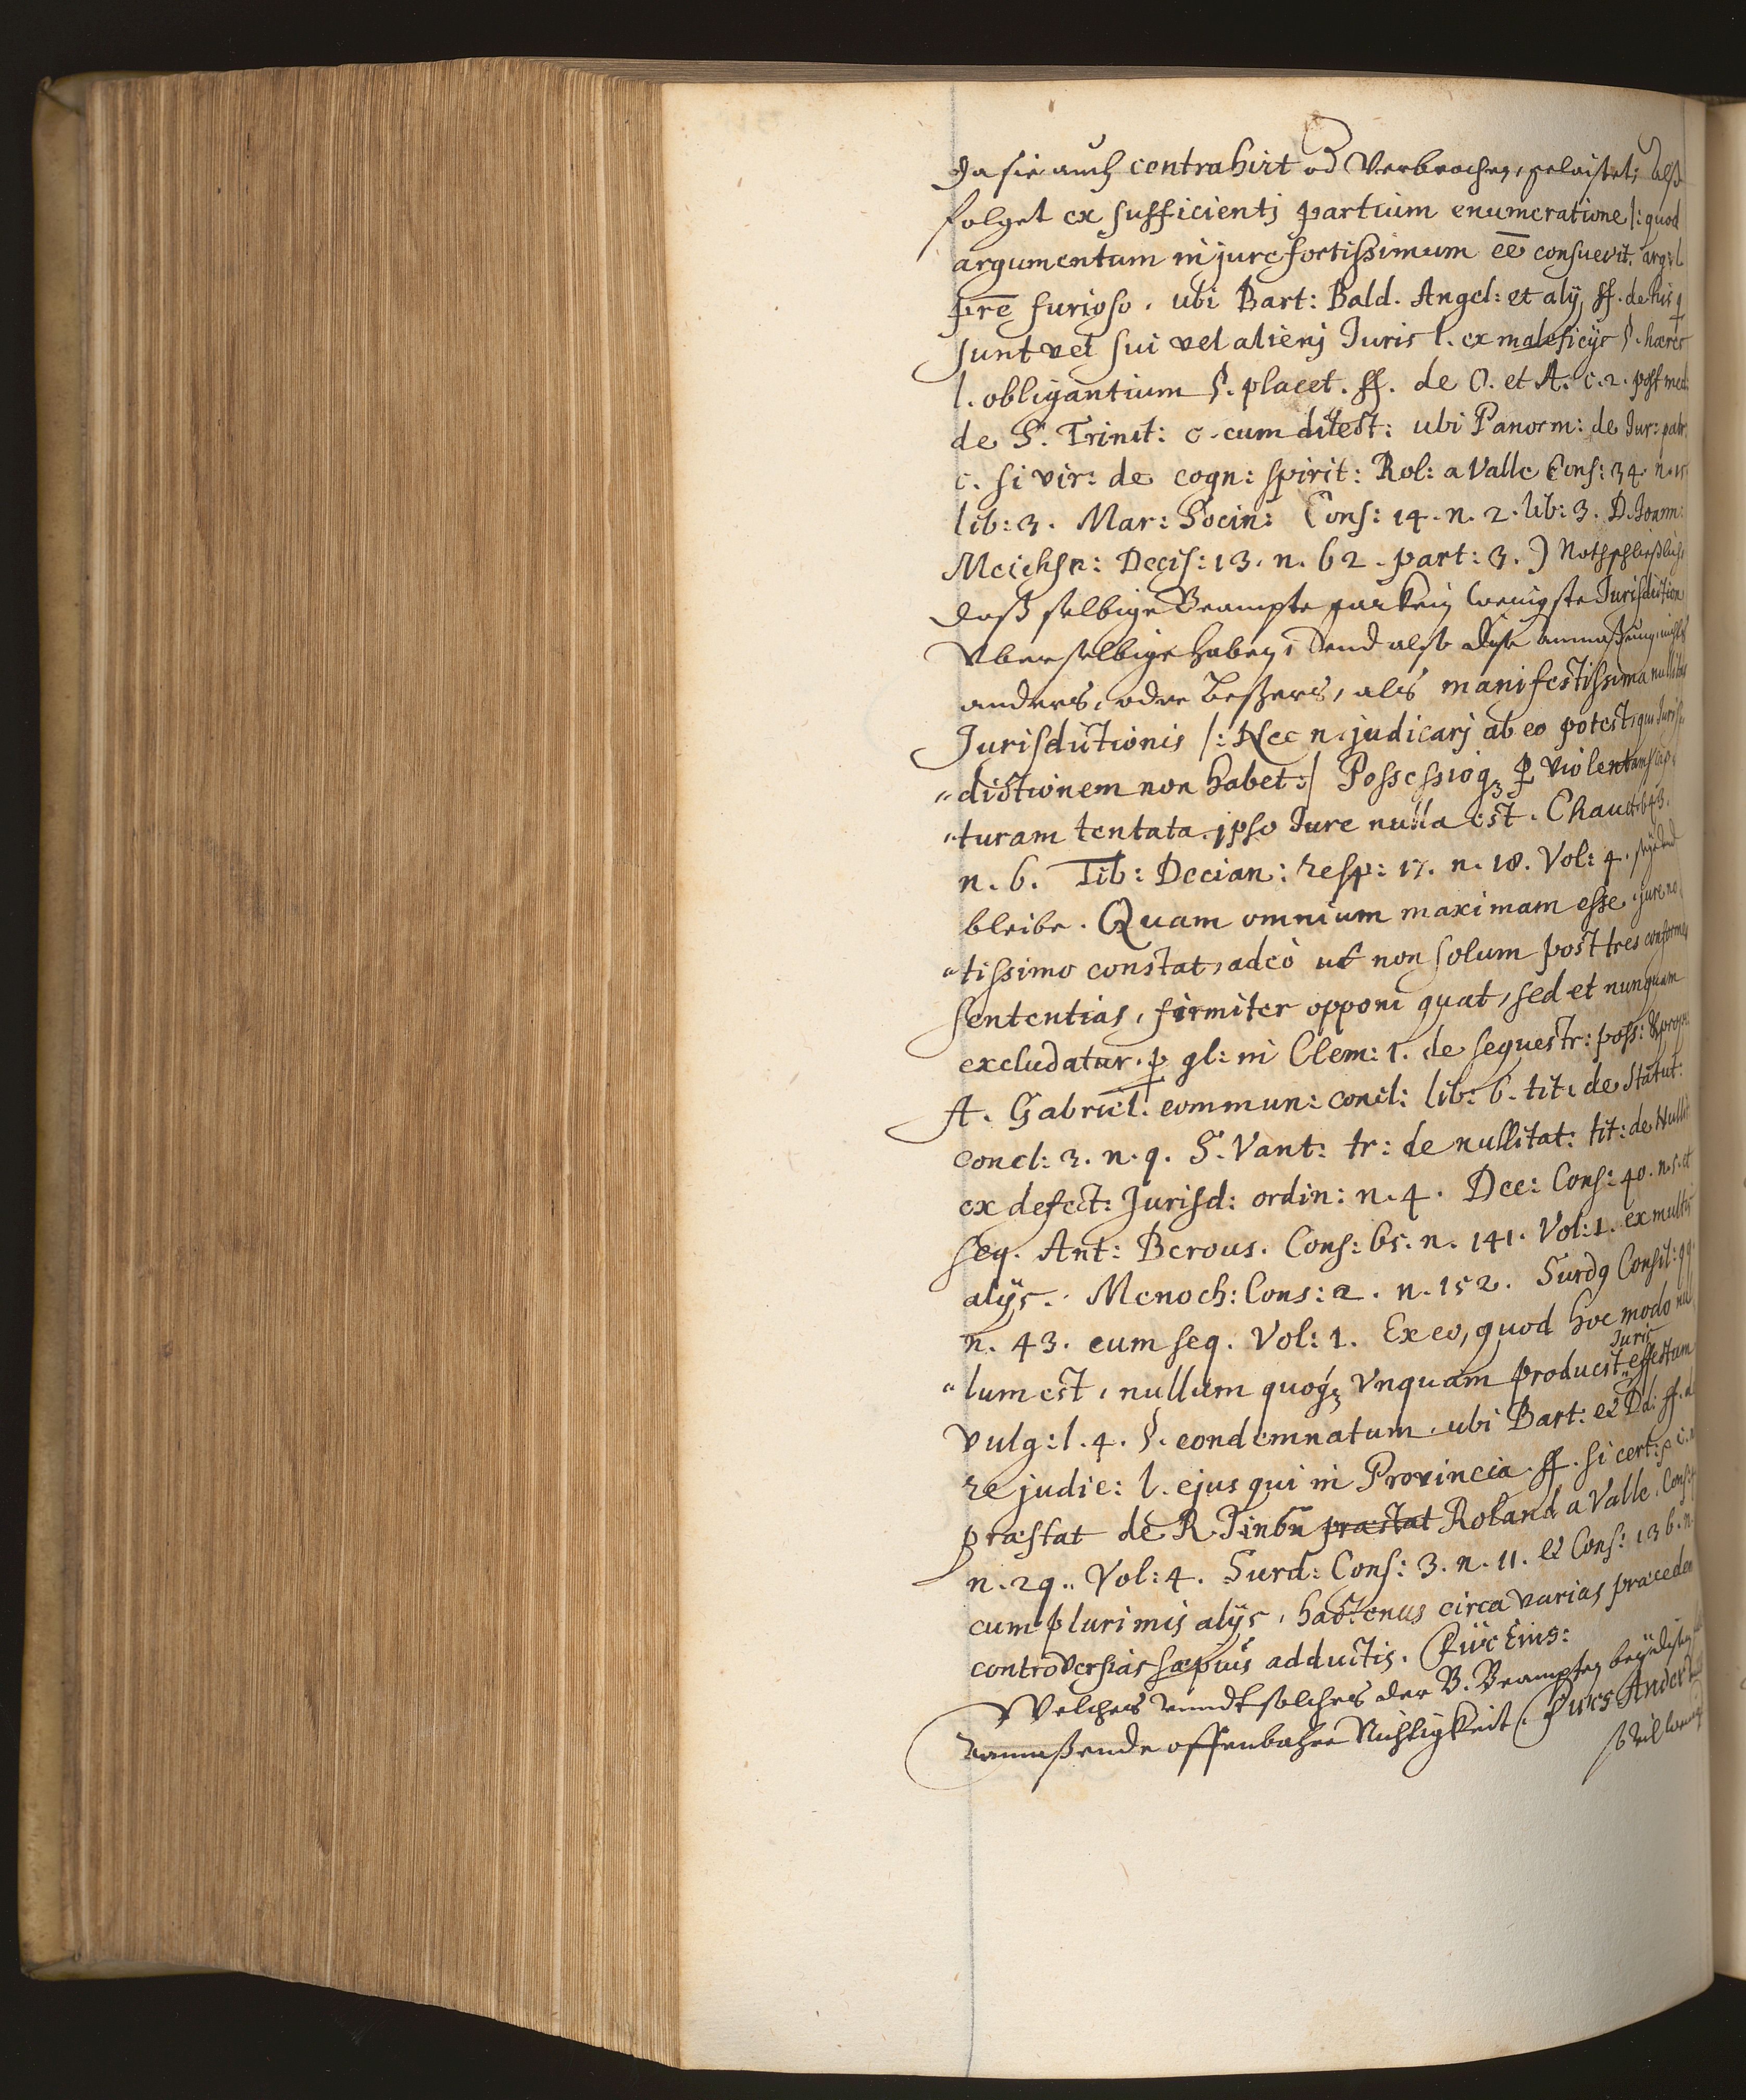 da sie auch contrahirt od Verbrochen, geleistet; Also
folget ex sufficientj partium enumeratione /: quod
argumentum in jure fortissimum eē consuevit. arg: l.
prē furioso. ubi Bart: Bald. Angel: et alÿ ff. de his q
sunt vel sui vel alienj Juris l. ex maleficÿs §. hæres
l. obligantium §. placet. ff. de O. et A. c. 2. post med:
de S. Trinit: c. cum dilect: ubi Panorm: de Jur: patr:
c. si vir: de cogn: spirit: Rol: a Valle Cons: 34. n. 15
lib: 3. Mar: Socin: Cons: 14. n. 2. lib: 3. D. Joann:
Meichsn: Decis: 13. n. 62. part: 3. ) Nothschließlich
daß selbige Beampte gar kein wenigste Jurisdiction
Vber selbige haben, Vnd also diese anmaßung nichts
anders, oder beßers, als manifestissima nullitas
Jurisdictionis /: Nec n. judicarj ab eo potest, qui Juris
dictionem non habet :/ Possessioq3 p violentam cap
turam tentata ipso Jure nulla est.
n. 6. Tib: Decian: resp: 17. n. 18. Vol: 4.
bleibe. Quam omnium maximam esse, jure no
tissimo constat, adeò ut non solum post tres conformes
sententias, firmiter opponi queat, sed et nunquam
excludatur. p gl: in Clem: 1. de sequestr: poss:
A. Gabriel. commun: concl: lib: 6. tit: de Statut:
concl: 3. n. 9. S. Vant: tr: de nullitat: tit: de Nullit
ex defect: Jurisd: ordin: n. 4. Dec: Cons: 40. n. 5. et
seq. Ant: Berous. Cons: 65. n. 141. Vol: 1. ex multis
alÿs. Menoch: Cons: 2. n. 152. Surdg Consil: 99
n. 43. cum seq. Vol: 1. Ex eo, quod hoc modo nul
lum est, nullum quoq3 Vnquam producit Juris effectum
vulg: l. 4. §. condemnatum. ubi Bart: et Dd: ff. de
re judic: l. ejus qui in Provincia. ff. si cert: p
præstat de R. J. in 6n præstat Roland a Valle. Cons:
n. 29. Vol: 4. Surd: Cons: 3. n. 11. et Cons: 136. n.
cum plurimis alÿs, hactenus circa varias præceden
controversias sæpius adductis.
Welches vnndt solches der B. Beampten
anmaßende offenbahre Nichtigkeit